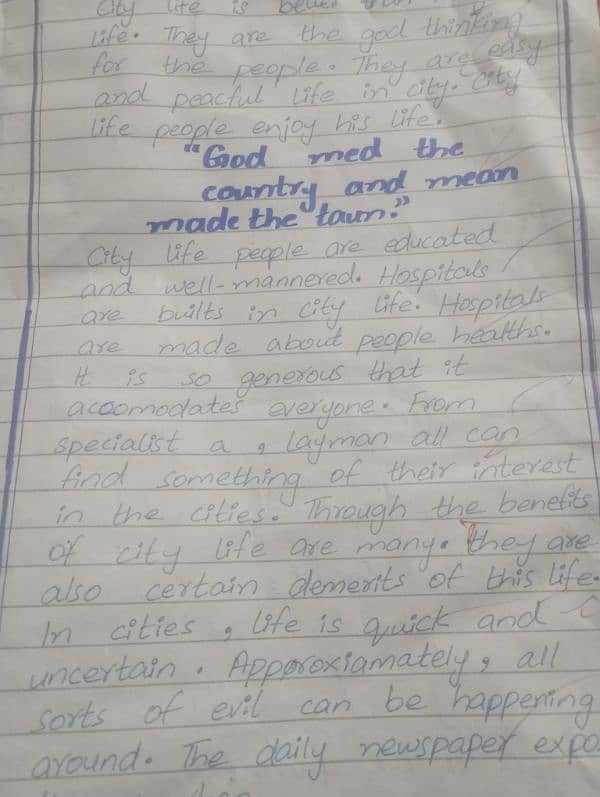 City life is better than
life. They are the god thinking
for the people. They are easy
and peacful life in city. City
life people enjoy his life.
"God med the
country and mean
made the taun."
City life people are educated
and well-mannered. Hospitals
are builts in city life. Hospitals
are made about people healths.
It is so generous that it
acoomodates everyone. From
specialist a, layman all can
find something of their interest
in the cities. Through the benefits
of city life are many. they are
also certain demerits of this life.
In cities, life is quick and
uncertain. Apporoxiamately, all
sorts of evil can be happening
around. The daily newspaper expo